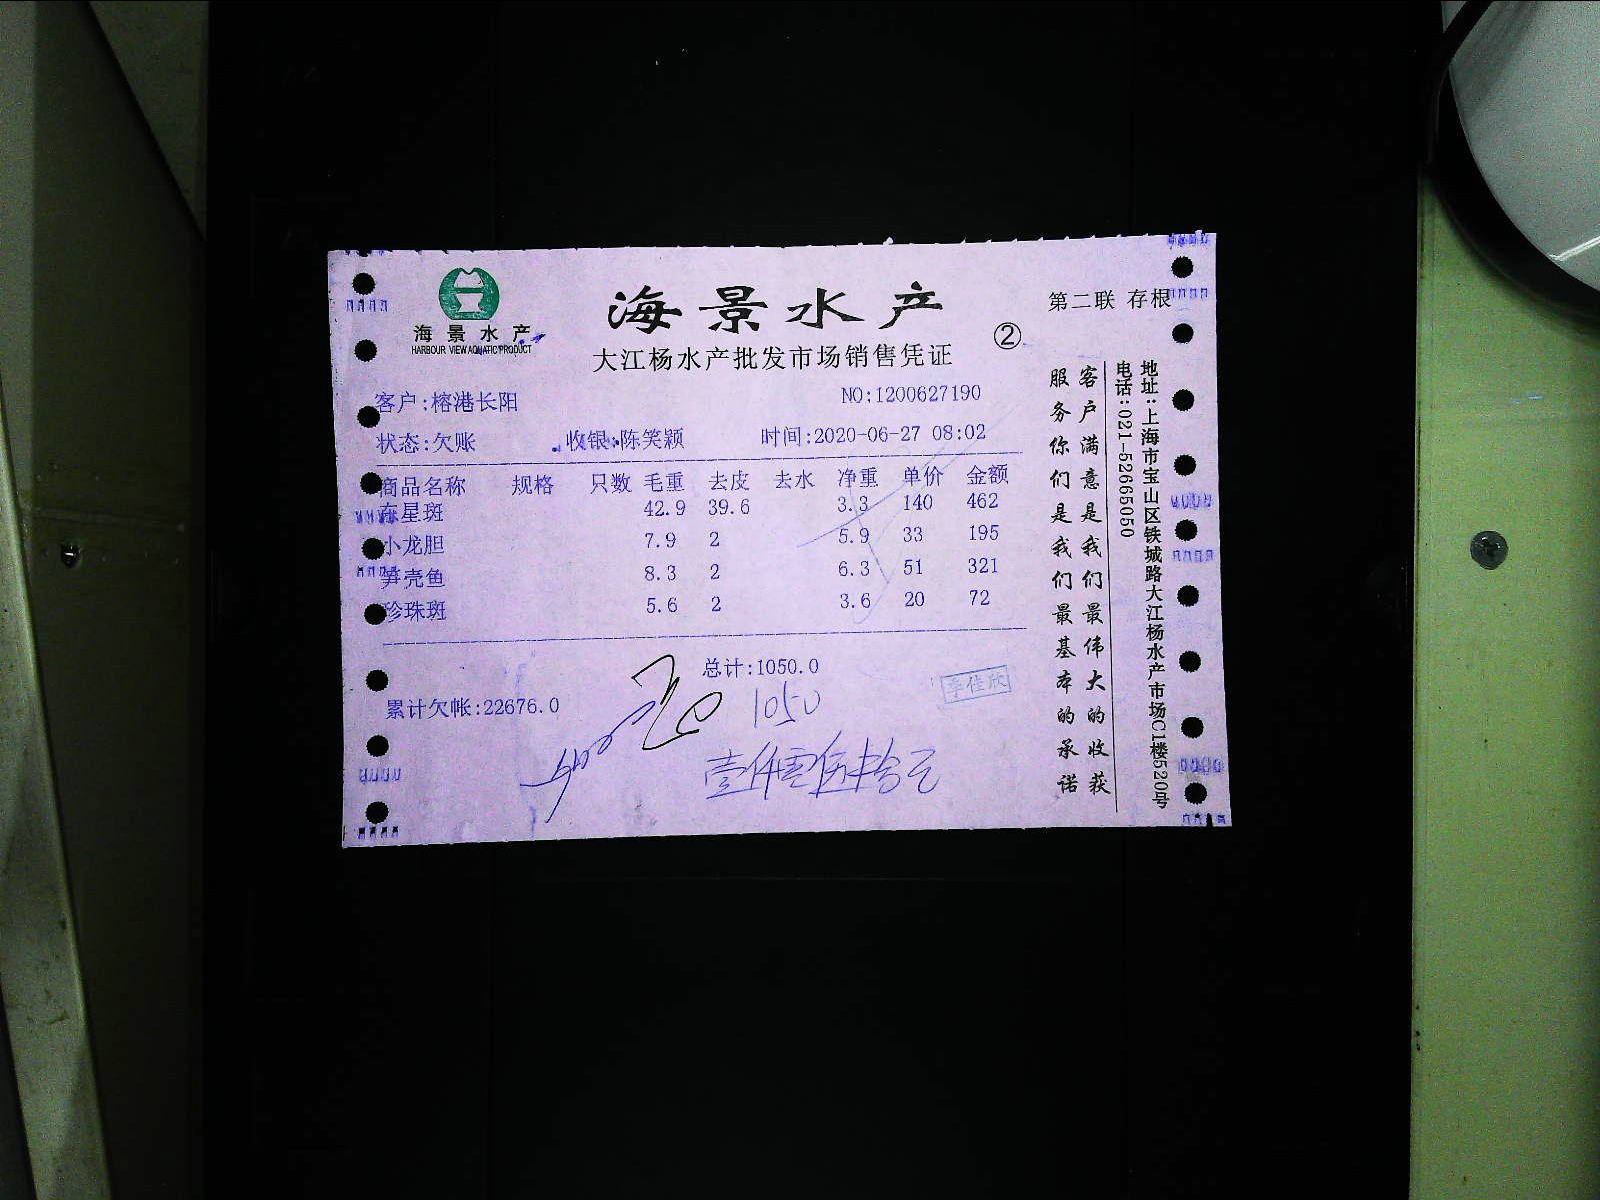 海景水产
HARBOUR VIEW AQUATIC PRODUCT
海景水产
大江杨水产批发市场销售凭证
②
第二联 存根
客户:榕港长阳
NO:1200627190
状态:欠账 收银:陈笑颖 时间:2020-06-27 08:02
商品名称 规格 只数 毛重 去皮 去水 净重 单价 金额
东星斑 42.9 39.6 3.3 140 462
小龙胆 7.9 2 5.9 33 195
笋壳鱼 8.3 2 6.3 51 321
珍珠斑 5.6 2 3.6 20 72
总计:1050.0
累计欠帐:22676.0
1050
壹仟零伍拾元
李佳欣
客户满意是我们最伟大的收获
服务你们是我们最基本的承诺
地址:上海市宝山区铁城路大江杨水产市场C1楼520号
电话:021-52665050